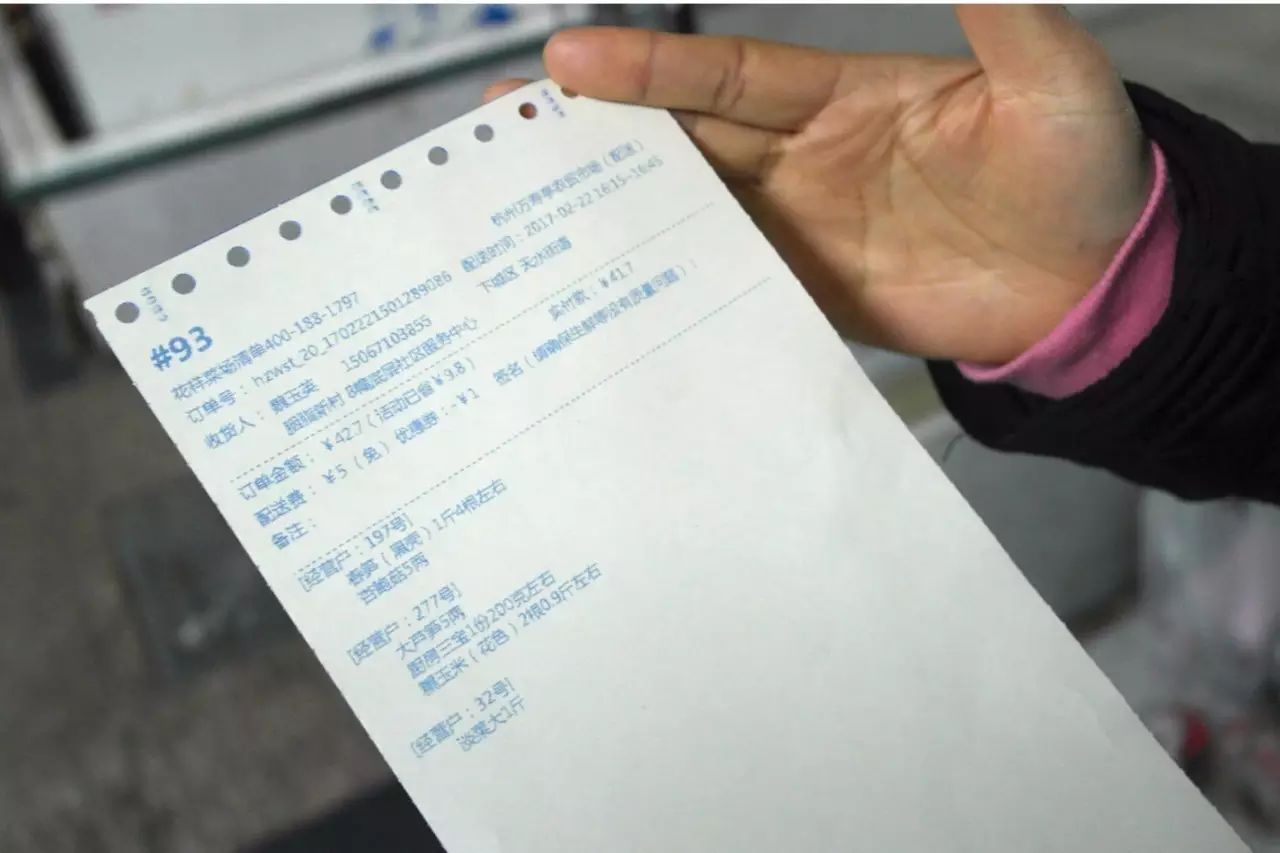 #93
花样菜场清单400-188-1797 杭州万寿亭农贸市场（配送）
订单号：hzwst_20_1702221501289086 配送时间：2017-02-22 16:15~16:45
收货人：魏玉英 15067103855 下城区 天水街道
胭脂新村 社区服务中心
订单金额：￥42.7（活动已省￥9.8） 实付款：￥41.7
配送费：￥5（免）优惠券：-￥1 签名（请确保生鲜等没有质量问题）：
备注：
[经营户：197号]
春笋（黑壳）1斤4根左右
杏鲍菇5两
[经营户：277号]
大芦笋5两
厨房三宝1份200克左右
糯玉米（花色）2根0.9斤左右
[经营户：32号]
淡菜大1斤